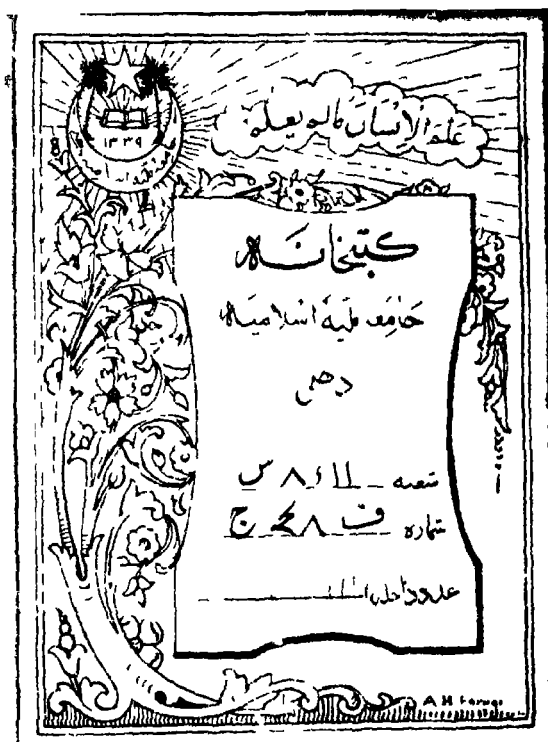 علم الانسان مالم يعلم
۱۳۳۹
کتبخانہ
جامعہ ملیہ اسلامیہ
دھلی
شعبہ ۸۱۱ء س
شمارہ ف ۸ ج
عدد داخلہ
A H Faruqi